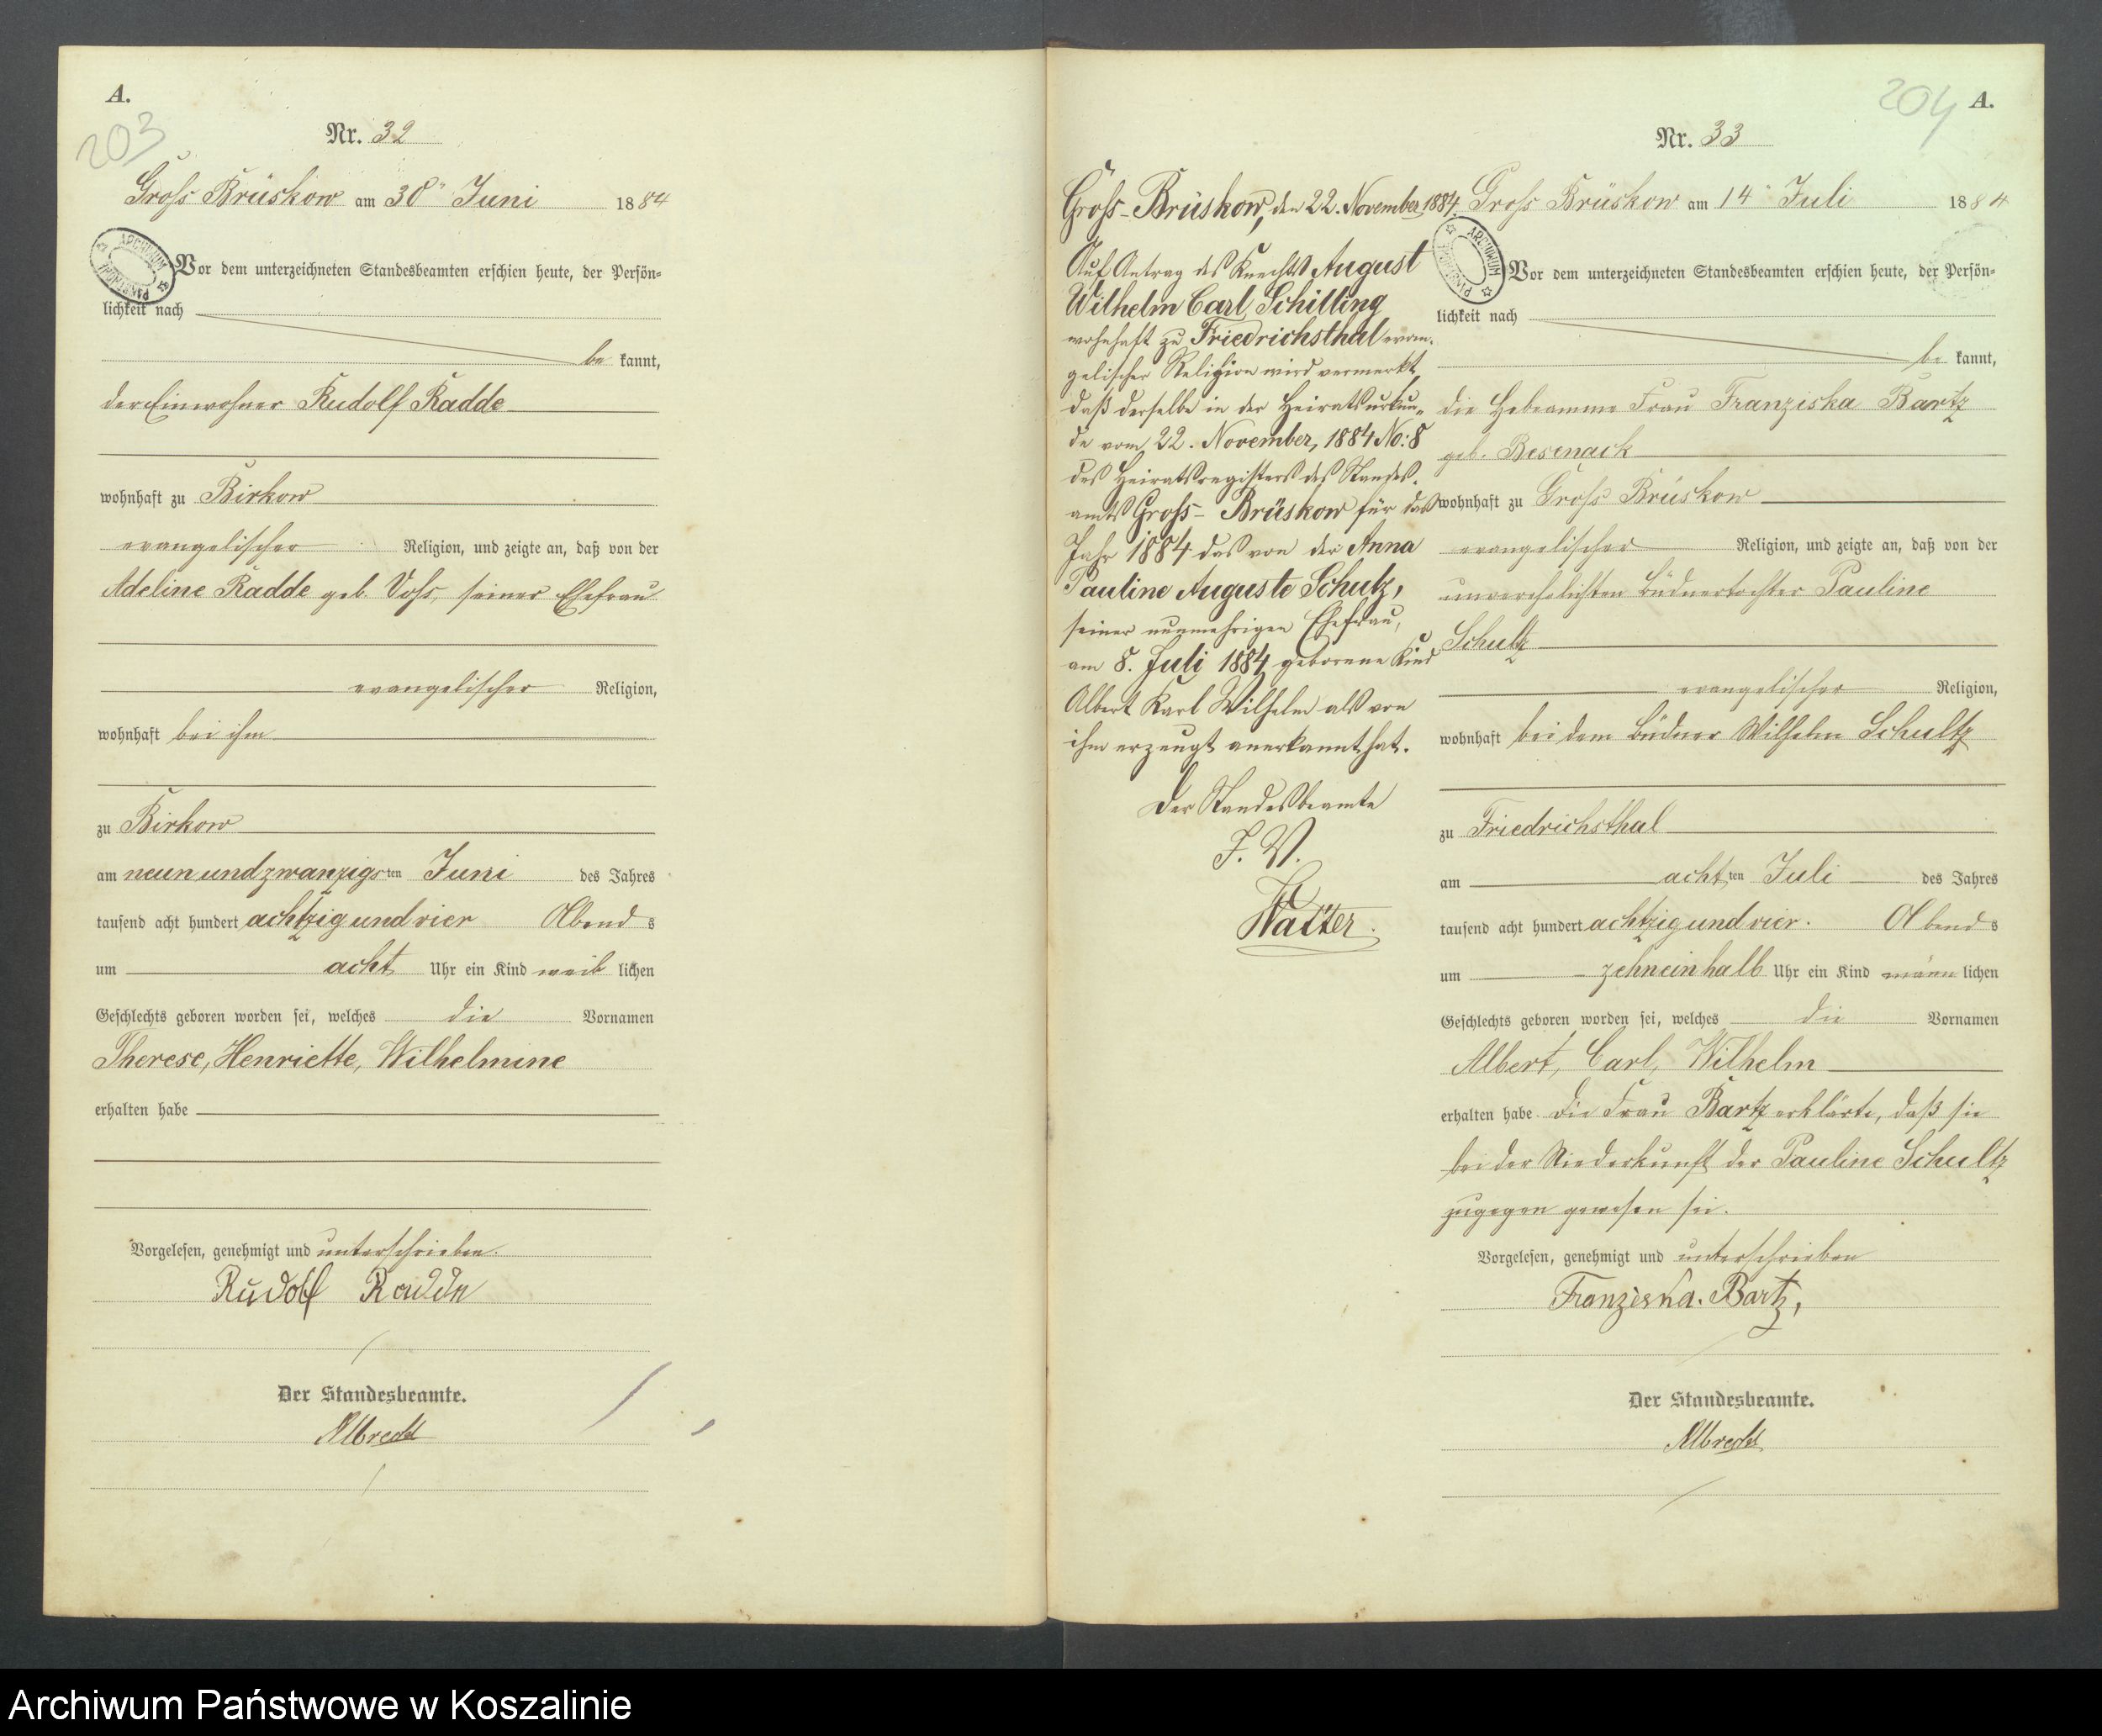 A.
203
Nr. 32
Groß Brüskow am 30ten Juni 1884
ARCHIWUM
PAŃSTWOWE
Vor dem unterzeichneten Standesbeamten erschien heute, der Persön-
lichkeit nach
be kannt,
der Einwohner Rudolf Radde
wohnhaft zu Birkow
evangelischer Religion, und zeigte an, daß von der
Adeline Radde geb. Voss, seiner Ehefrau
evangelischer Religion,
wohnhaft bei ihm
zu Birkow
am neunundzwanzigsten Juni des Jahres
tausend acht hundert achtzig und vier Abends
um acht Uhr ein Kind weiblichen
Geschlechts geboren worden sei, welches die Vornamen
Therese, Henriette, Wilhelmine
erhalten habe
Vorgelesen, genehmigt und unterschrieben.
Rudolf Radde
Der Standesbeamte.
Albrecht
204 A.
Nr. 33
Groß-Brüskow, den 22. November 1884.
Auf Antrag des Knechts August
Wilhelm Carl Schilling
wohnhaft zu Friedrichsthal evan-
gelischer Religion wird vermerkt,
daß derselbe in der Heiratsurkun-
de vom 22. November 1884 No: 8
des Heiratsregisters des Standes-
amts Groß-Brüskow für das
Jahr 1884 das von der Anna
Pauline Auguste Schulz,
seiner nunmehrigen Ehefrau,
am 8. Juli 1884 geborene Kind
Albert Karl Wilhelm als von
ihm erzeugt anerkannt hat.
Der Standesbeamte
I. V.
Groß Brüskow am 14ten Juli 1884
ARCHIWUM
PAŃSTWOWE
Vor dem unterzeichneten Standesbeamten erschien heute, der Persön-
lichkeit nach
be kannt,
die Hebeamme Frau Franziska Bartz
geb. Besenack
wohnhaft zu Groß Brüskow
evangelischer Religion, und zeigte an, daß von der
unverehelichten Büdnertochter Pauline
Schultz
evangelischer Religion,
wohnhaft bei dem Büdner Wilhelm Schultz
zu Friedrichsthal
am achtten Juli des Jahres
tausend acht hundert achtzig und vier. Abends
um zehneinhalb Uhr ein Kind männlichen
Geschlechts geboren worden sei, welches die Vornamen
Albert, Carl, Wilhelm
erhalten habe. Die Frau Bartz erklärte, daß sie
bei der Niederkunft der Pauline Schultz
zugegen gewesen sei.
Vorgelesen, genehmigt und unterschrieben
Franziska. Bartz,
Der Standesbeamte.
Albrecht
Archiwum Państwowe w Koszalinie